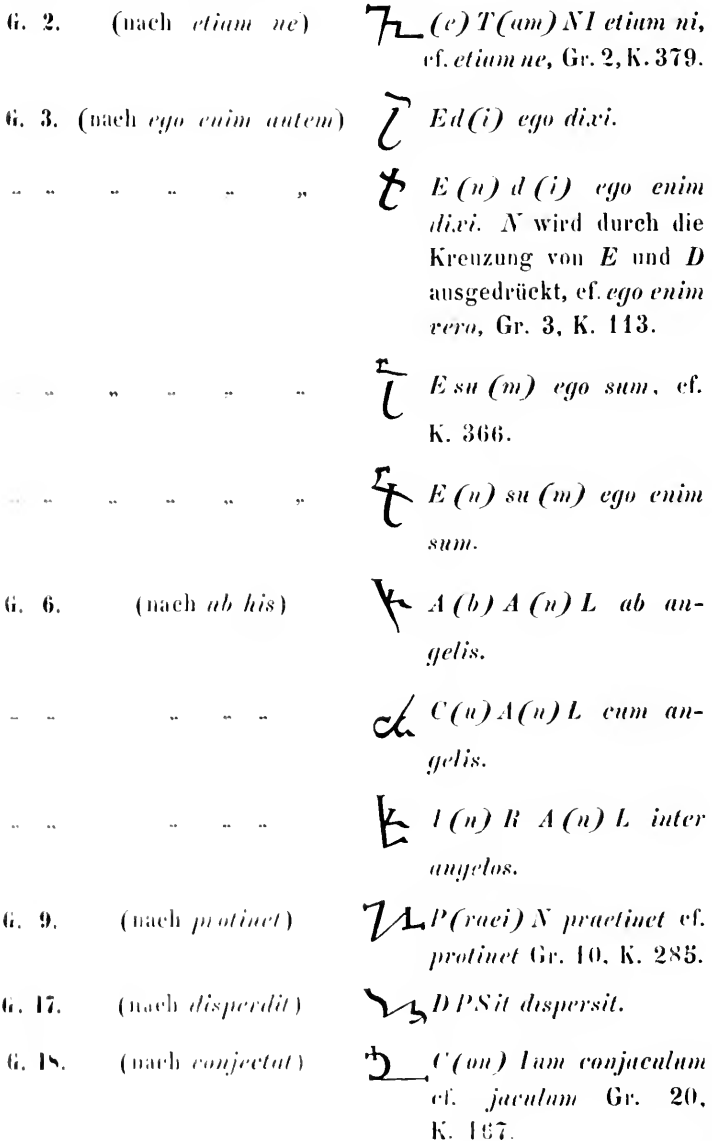 G. 2. (nach etiam ne) (e) T(am) NI etiam ni,
cf. etiam ne, Gr. 2, K. 379.
G. 3. (nach ego enim autem) Ed(i) ego dixi.
„ „ „ „ „ „ E (n) d (i) ego enim
dixi. N wird durch die
Kreuzung von E und D
ausgedrückt, cf. ego enim
vero, Gr. 3, K. 113.
„ „ „ „ „ E su (m) ego sum, cf.
K. 366.
„ „ „ „ „ „ E (n) su (m) ego enim
sum.
G. 6. (nach ab his) A (b) A (n) L ab an-
gelis.
„ „ „ „ „ C(u) A(n) L cum an-
gelis.
„ „ „ „ „ I (n) R A (n) L inter
angelos.
G. 9. (nach protinet) P(raei) N praetinet cf.
protinet Gr. 10, K. 285.
G. 17. (nach disperdit) DPSit dispersit.
G. 18. (nach conjectat) C(on) Ium conjaculum
cf. jaculum Gr. 20,
K. 167.